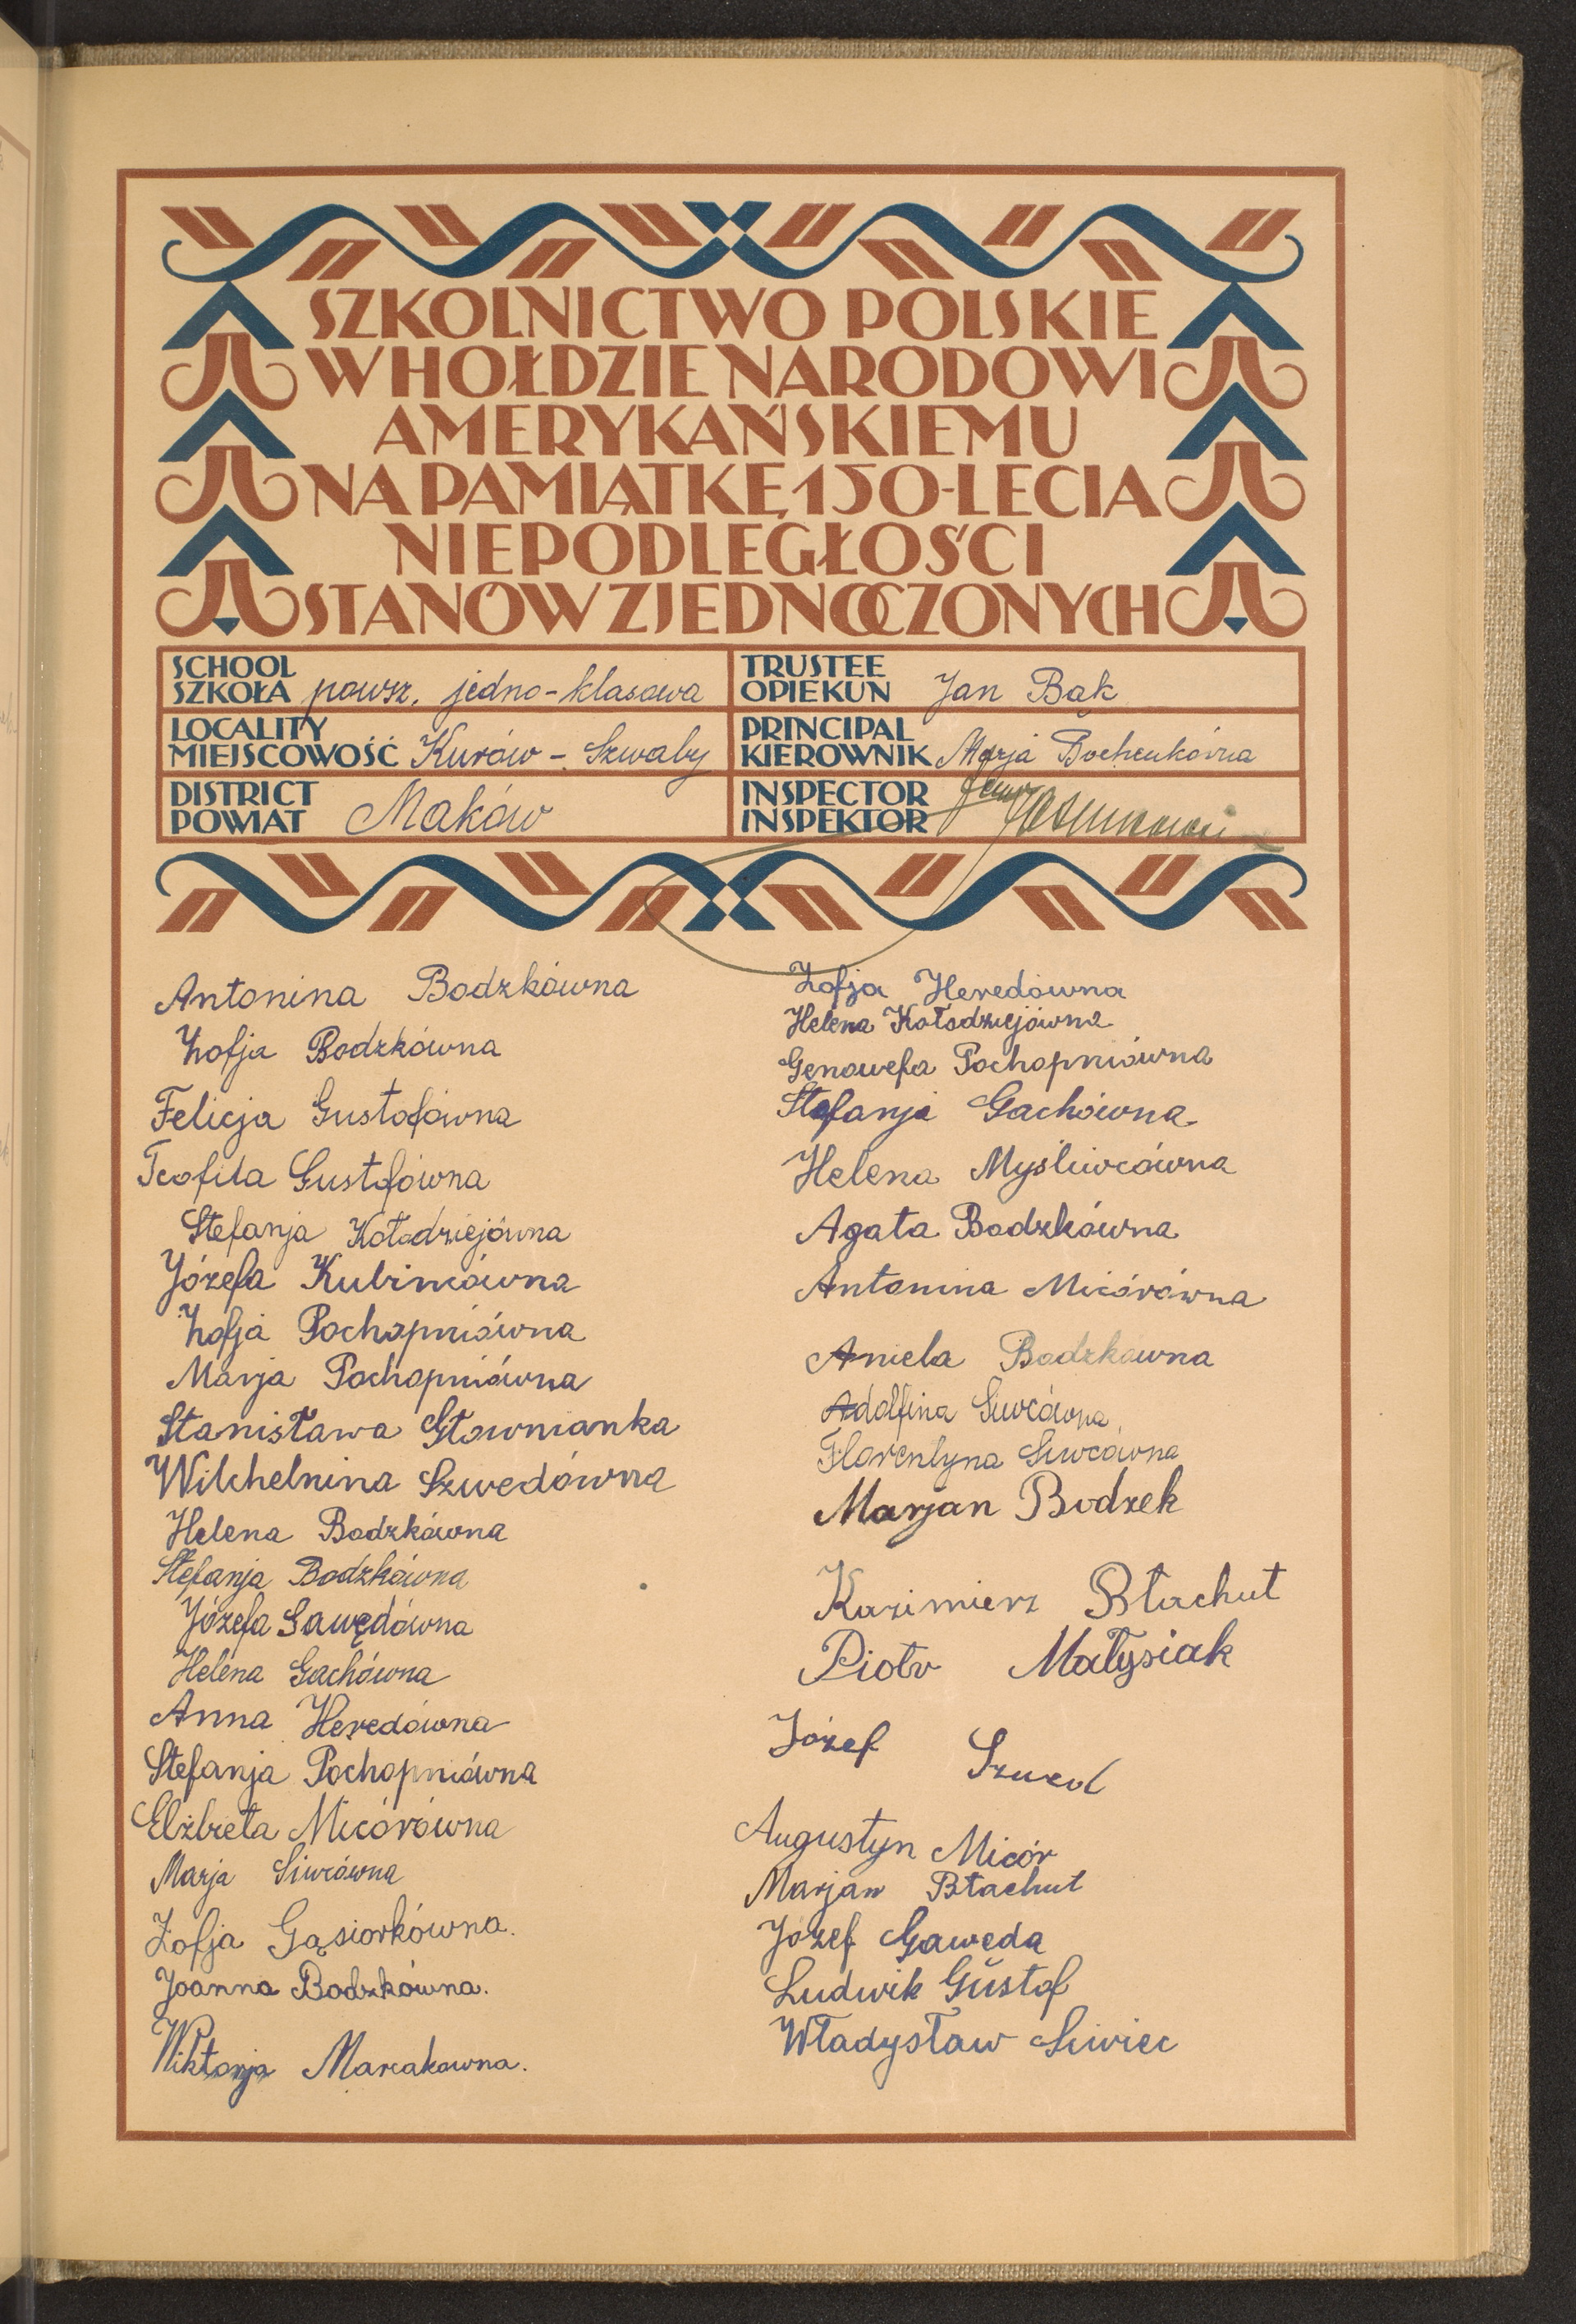 SZKOLNICTWO POLSKIE
W HOŁDZIE NARODOWI
AMERYKAŃSKIEMU
NA PAMIĄTKĘ 150-LECIA
NIEPODLEGŁOŚCI
STANÓW ZJEDNOCZONYCH
SCHOOL
SZKOŁA powsz. jedno-klasowa
TRUSTEE
OPIEKUN Jan Bąk
LOCALITY
MIEJSCOWOŚĆ Kurów - Szwaby
PRINCIPAL
KIEROWNIK Marja Bochenkówna
DISTRICT
POWIAT Maków
INSPECTOR
INSPEKTOR
Antonina Bodzkówna
Zofja Bodzkówna
Felicja Gustofówna
Teofila Gustofówna
Stefanja Kołodziejówna
Józefa Kubincówna
Zofja Pochopniówna
Marja Pochopniówna
Stanisława Głownianka
Wilchelnina Szwedówna
Helena Bodzkówna
Stefanja Bodzkówna
Józefa Gawędówna
Helena Gachówna
Anna Heredówna
Stefanja Pochopniówna
Elżbieta Micórówna
Marja Siwcówna
Zofja Gąsiorkówna.
Joanna Bodzkówna.
Wiktorja Marcakowna.
Zofja Heredówna
Helena Kołodziejówna
Genowefa Pochopniówna
Stefanja Gachówna
Helena Myśliwcówna
Agata Bodzkówna
Antonina Micórówna
Aniela Bodzkowna
Adolfina Siwcówna
Florentyna Siwcówna
Marjan Bodzek
Kazimierz Błachut
Piotr Małysiak
Józef Szwed
Augustyn Micór
Marjan Błachut
Józef Gaweda
Ludwik Gustof
Władysław Siwiec